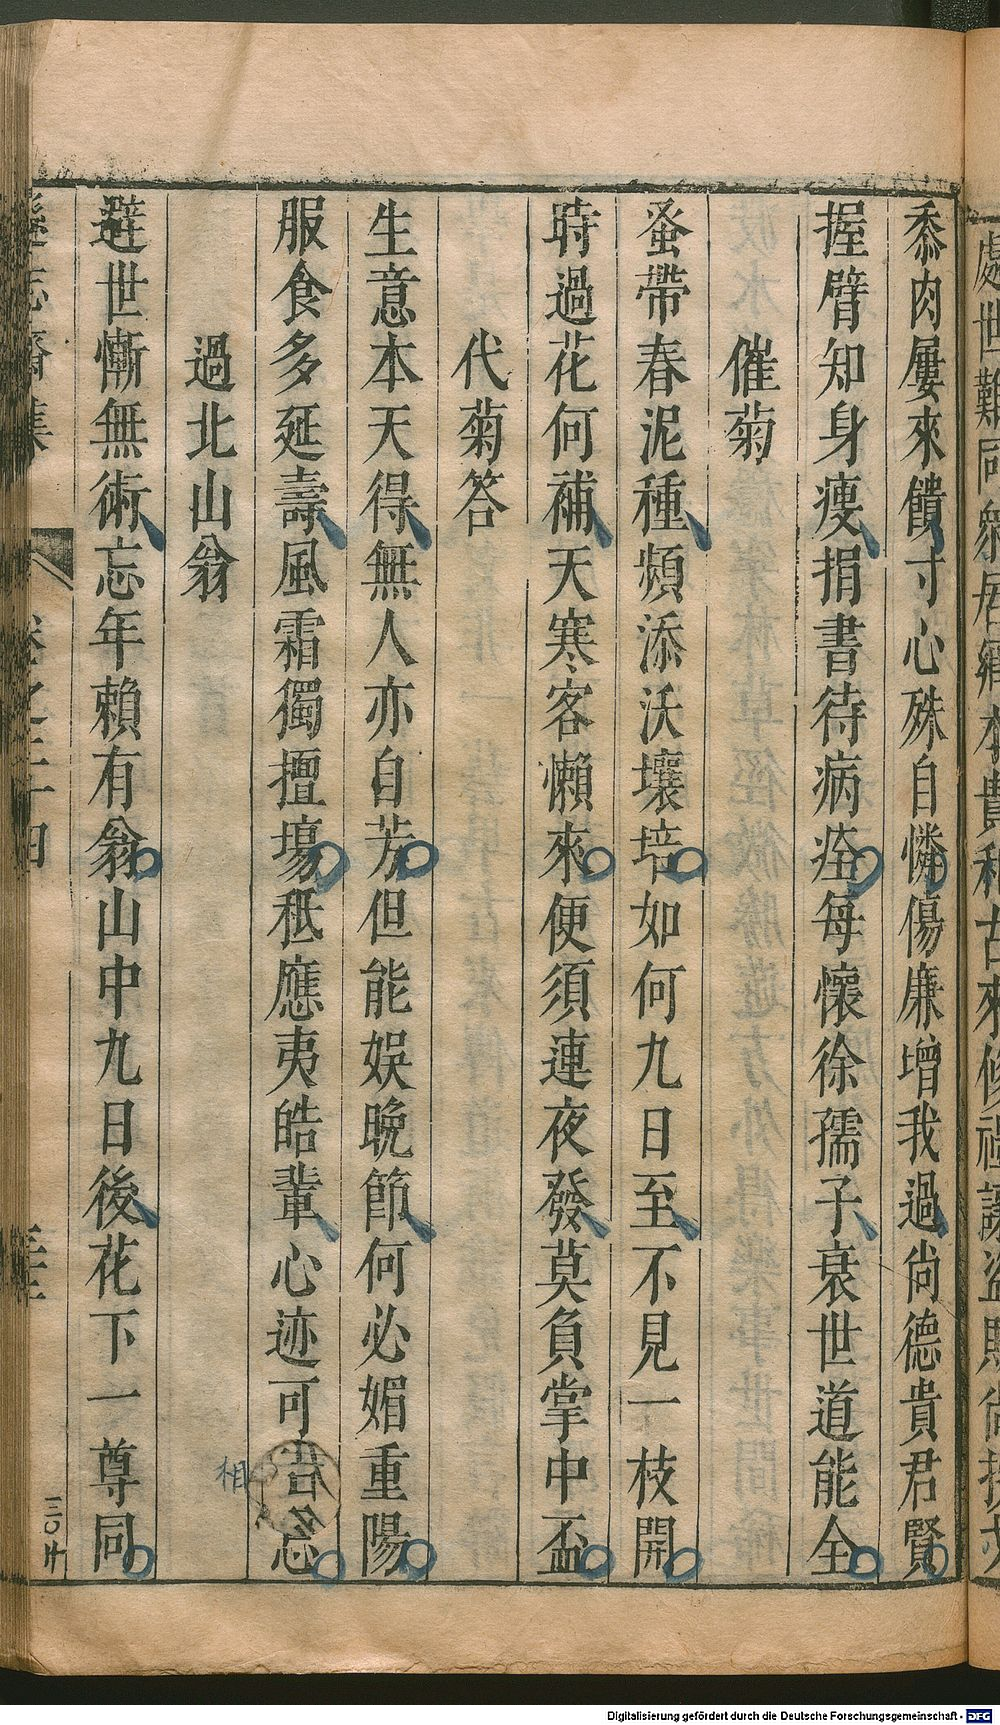 黍肉屢來饋寸心殊自憐傷廉增我過尚德貴君賢
握臂知身瘦捐書待病痊每懷徐孺子衰世道能全
催菊
蚤帶春泥種頻添沃壤培如何九日至不見一枝開
時過花何補天寒客懶來便須連夜發莫負掌中盃
代菊答
生意本天得無人亦自芳但能娛晚節何必媚重陽
服食多延壽風霜獨擅塲秪應夷皓輩心迹可忘
相
過北山翁
避世慚無術忘年賴有翁山中九日後花下一尊同
遜志齋集 卷之二十四
Digitalisierung gefördert durch die Deutsche Forschungsgemeinschaft - DFG